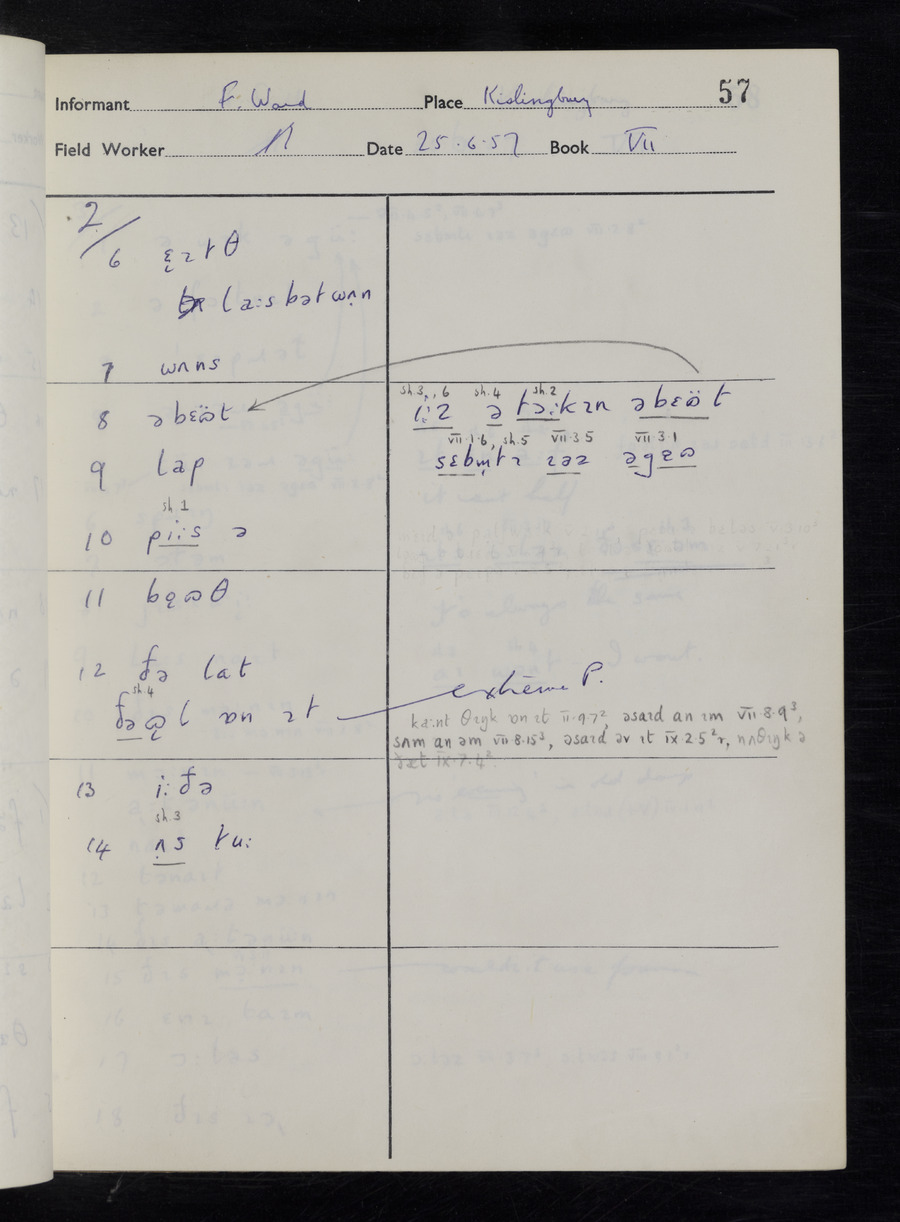 Informant F. Ward Place Kislingbury 57
Field Worker Date 25.6.57 Book VII
2/6 ɛɪtθ
la:s bət wʌn
7 wʌns
8 əbɛɷ̈t
sh.3, 6 sh.4 sh.2
i:z ə tɔ:kɪn əbɛɷ̈t
VII.1.6, sh.5 VII.3.5 VII.3.1
9 lap
sh.1
10 pi:s ə
11 bɷθ
12 ðə lat
sh.4
ɒn ɪt — extreme P.
ka:nt θɪŋk ɒn ɪt II.9.7², əsaɪd an ɪm VII.8.9³,
sʌm an əm VII.8.15³, əsaɪd əv ɪt IX.2.5²r, nʌθɪŋk ə
ðæt IX.7.4².
13 i:ðə
sh.3
14 ʌs tu: